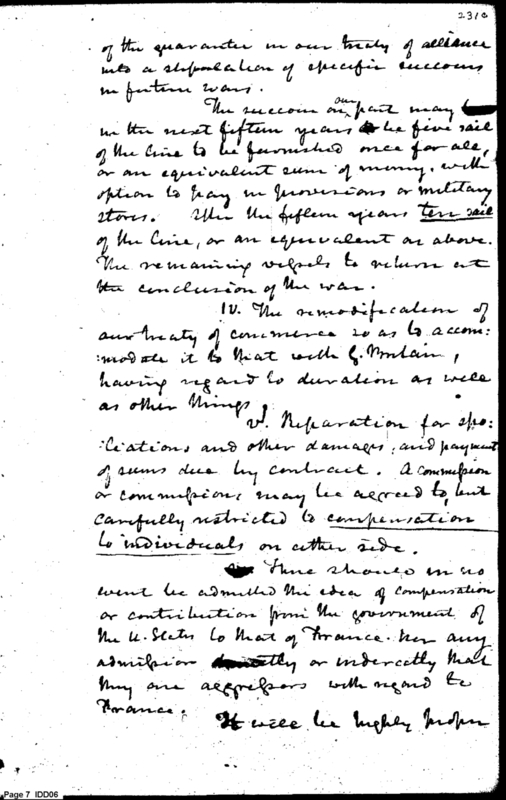 2310
of the guarantee in our treaty of alliance
into a stipulation of specific succours
in future wars.
The succour on our part may
in the next fifteen years be five sail
of the line to be furnished once for all,
or an equivalent sum of money, with
option to pay in provisions or military
stores. After the fifteen years ten sail
of the line, or an equivalent as above.
The remaining vessels to return at
the conclusion of the war.
IV. The remodification of
our treaty of commerce so as to accom:
:modate it to that with G. Britain,
having regard to duration as well
as other things,
V. Reparation for spo:
:liations and other damages, and payment
of sums due by contract. A commission
or commissions may be agreed to, but
carefully restricted to compensation
to individuals on either side.
There should in no
event be admitted the idea of compensation
or contribution from the government of
the U. States to that of France. Nor any
admission or inderectly that
they are aggressors with regard to
France.
It will be highly proper
Page 7 IDD06